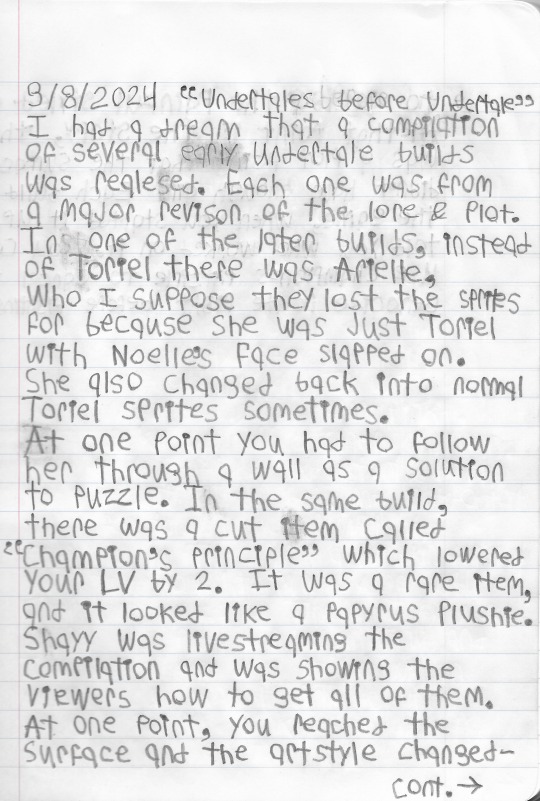 9/8/2024 "Undertales before Undertale"
I had a dream that a compilation
of several early Undertale builds
was released. Each one was from
a major revison of the lore & Plot.
In one of the later builds, instead
of Toriel there was Arielle,
Who I suppose they lost the sprites
for because she was Just Toriel
with Noelle's face slapped on.
She also changed back into normal
Toriel sprites sometimes.
At one point you had to follow
her through a wall as a solution
to puzzle. In the same build,
there was a cut item called
"Champion's principle" which lowered
your LV by 2. It was a rare item,
and it looked like a Papyrus Plushie.
Shayy was livestreaming the
compilation and was showing the
viewers how to get all of them.
At one point, you reached the
surface and the artstyle changed-
cont.→